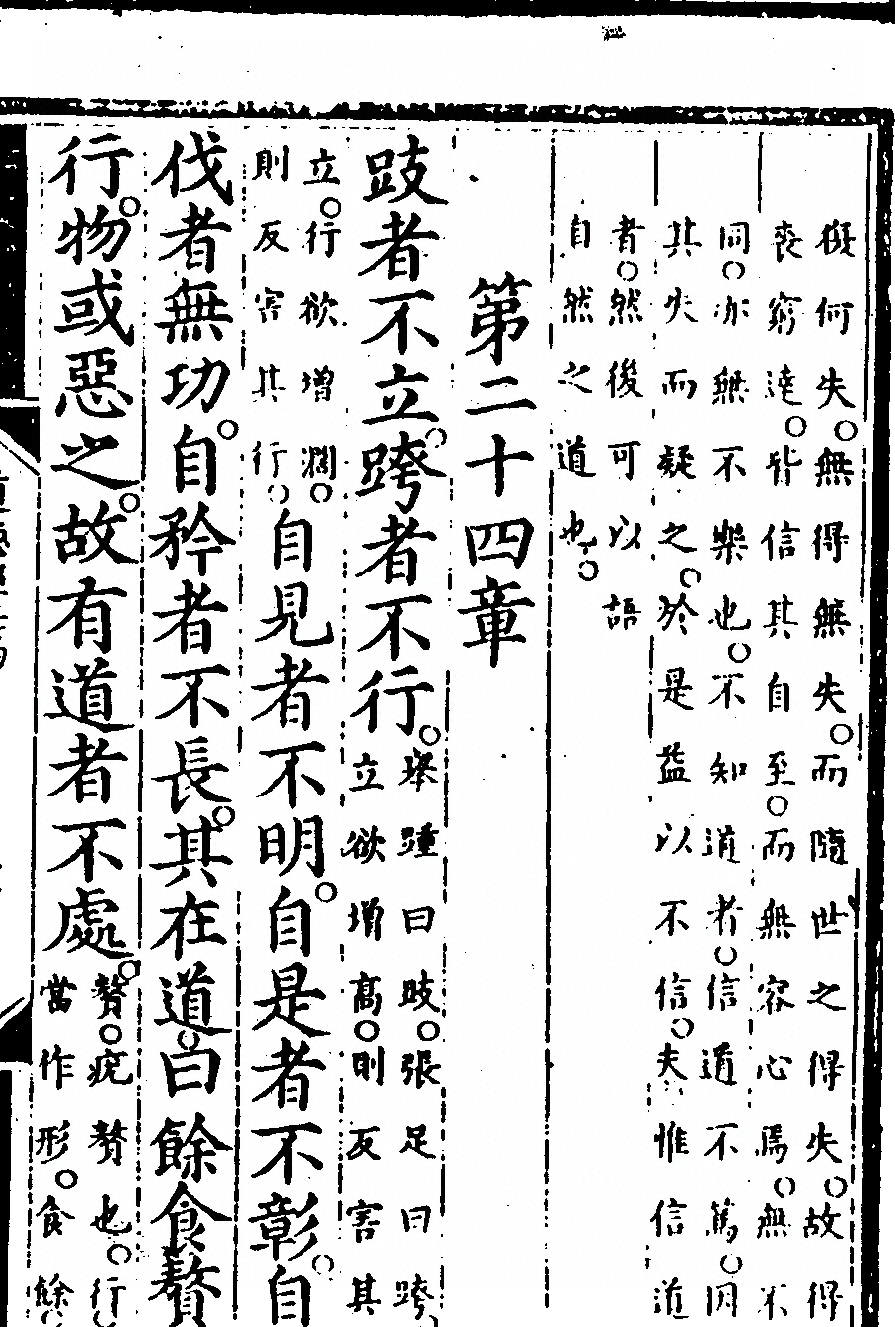 擬何失無得無失而隨世之得失故得
喪窮達皆信其自至而無容心焉無不
同亦無不樂也不知道者信道不篤因
其失而疑之於是益以不信夫惟信道
者然後可以語
自然之道也
第二十四章
跂者不立跨者不行舉踵曰跂張足曰跨
立欲增高則反害其
立行欲增濶
則反害其行自見者不明自是者不彰自
伐者無功自矜者不長其在道曰餘食贅
行物或惡之故有道者不處贅疣贅也行
當作形食餘